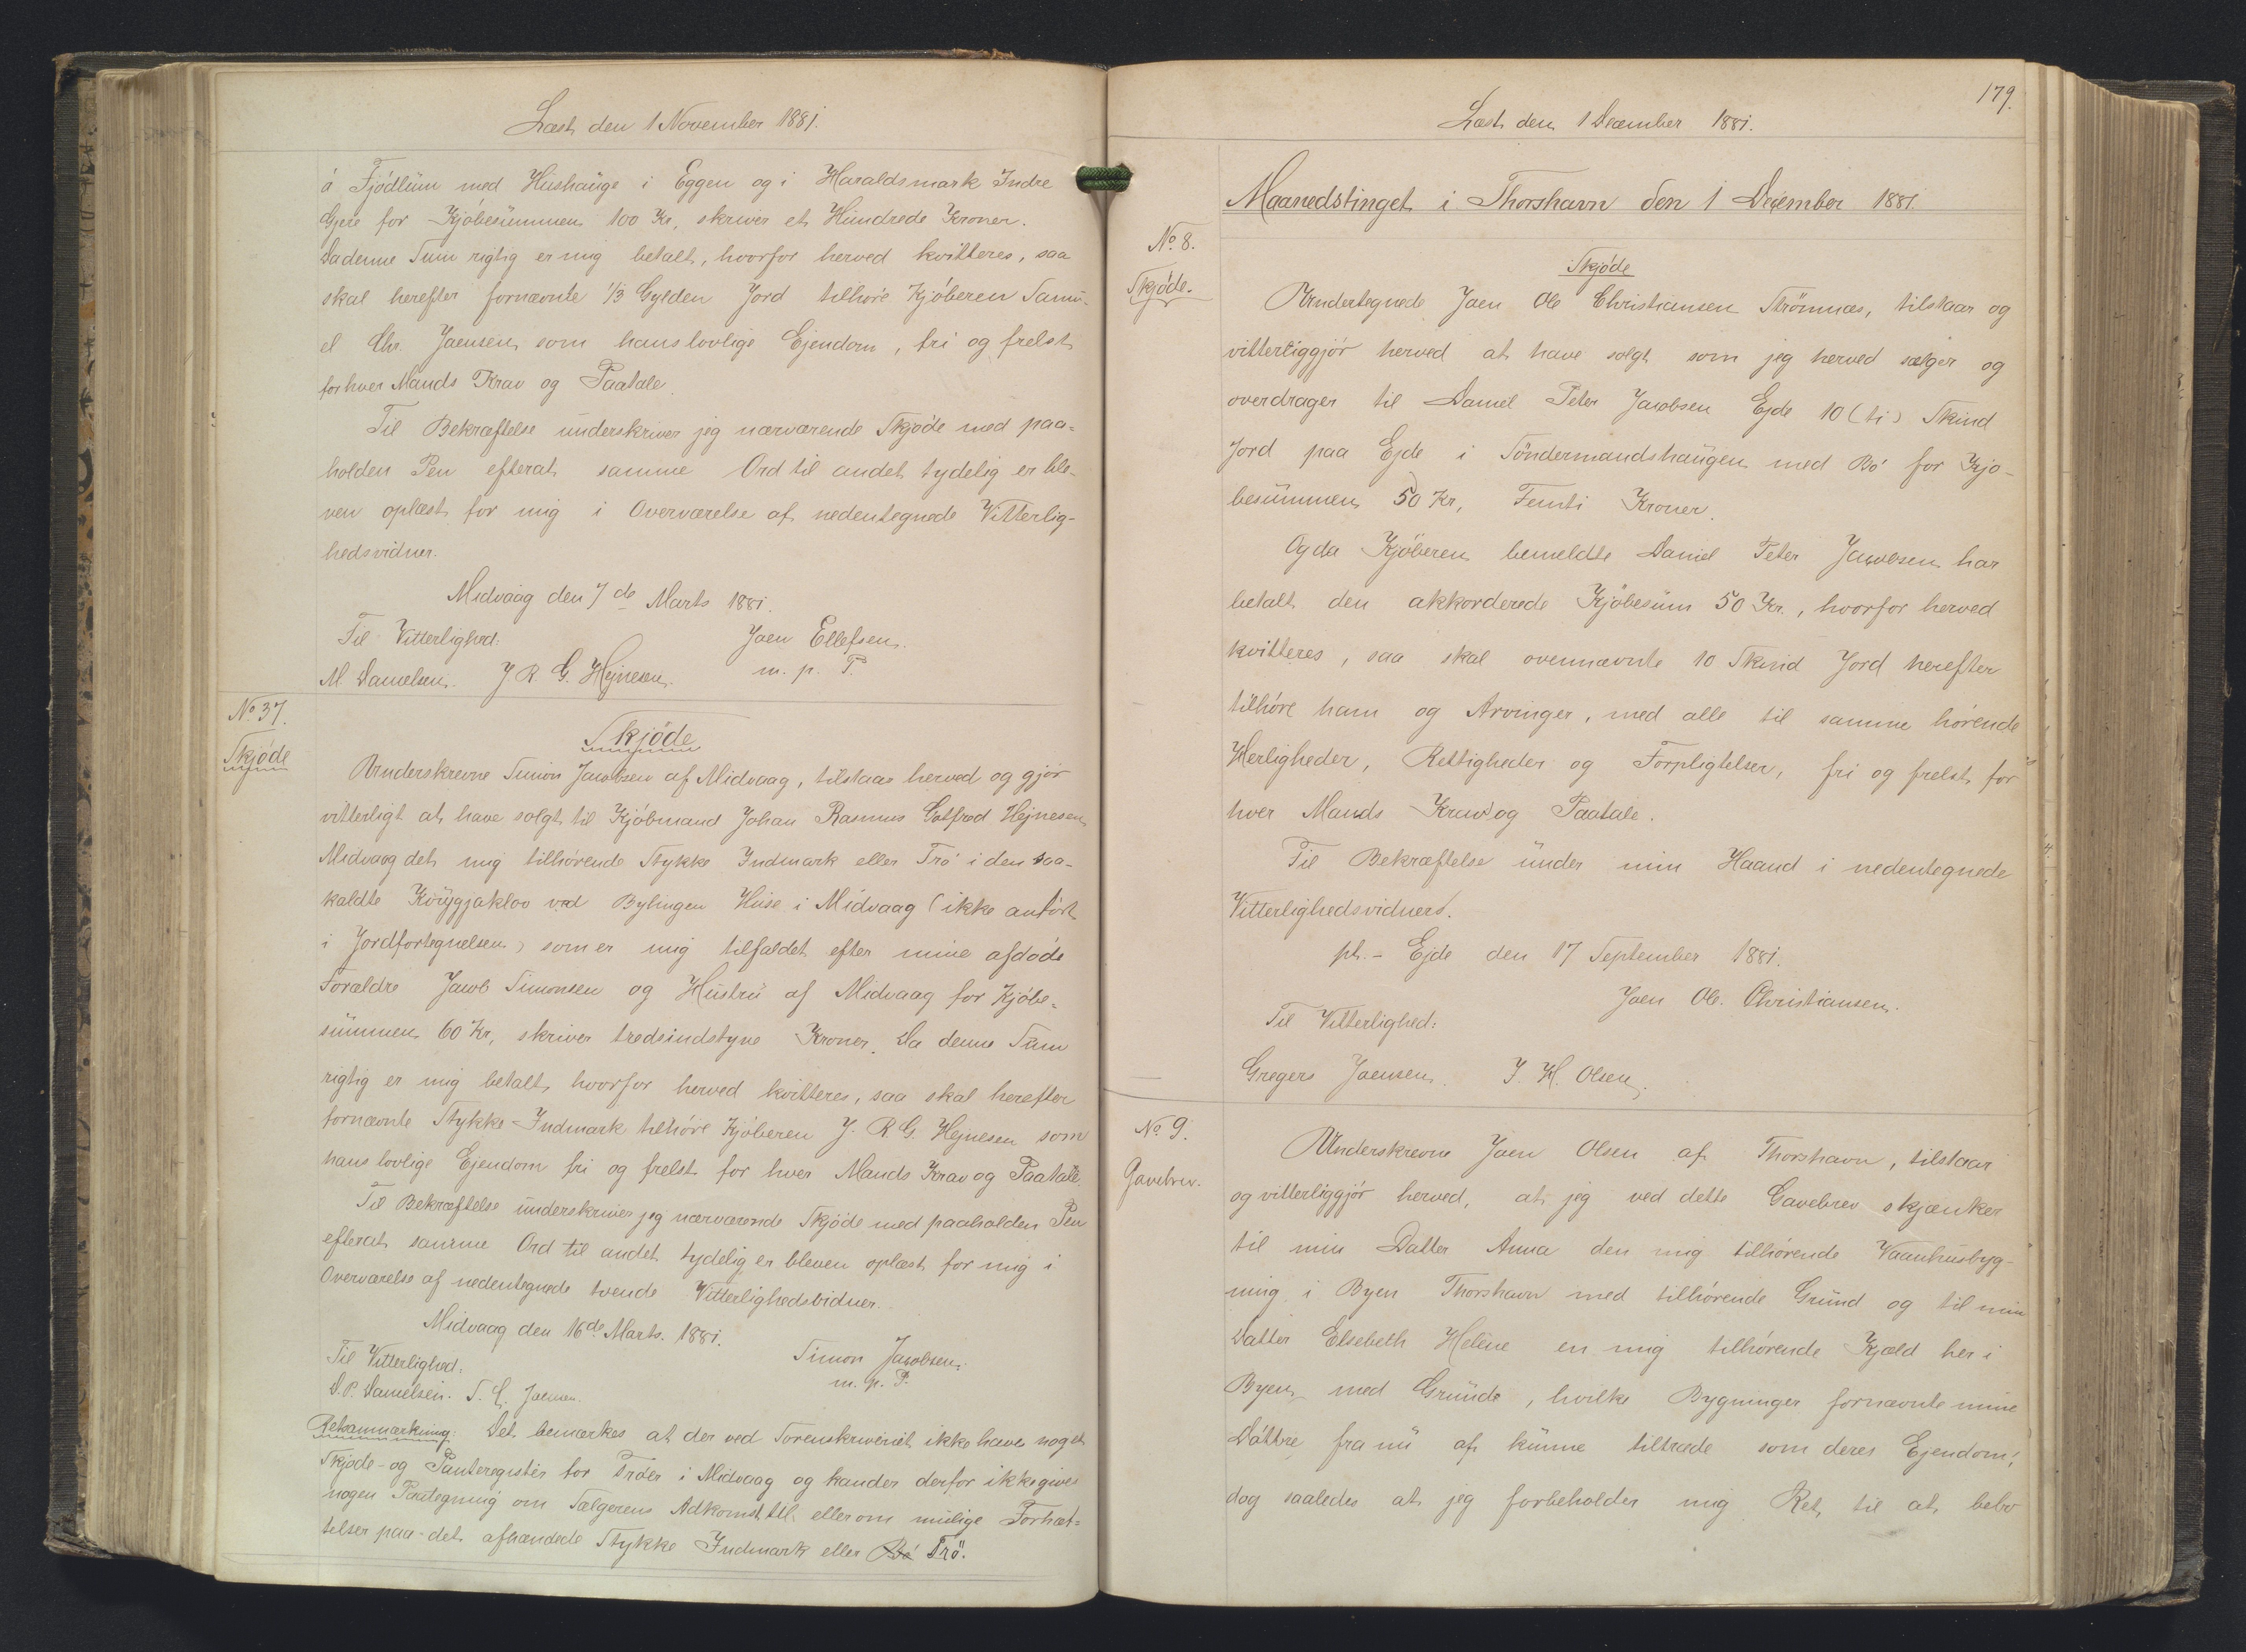 Læst den 1 November 1881.
á Fjódlüm med Hüshaüge i Eggen og i Haraldsmark Indre
Gjere for Kjöbesümmen 100 Kr, skriver et Hündrede Kroner.
Da denne Süm rigtig er mig betalt, hvorfor herved kvitteres, saa
skal herefter fornævnte 1/3 Gylden Jord tilhöre Kjöberen Samü-
el Chr. Joensen som hans lovlige Ejendom, fri og frelst
for hver Mands Krav og Paatale.
Til Bekræftelse ünderskriver jeg nærværende Skjöde med paa=
holden Pen efterat samme Ord til andet tydelig er ble-
ven oplæst for mig i Overværelse af nedentegnede Vitterlig-
hedsvidner.
Midvaag den 7de Marts 1881.
Til Vitterlighed: Joen Ellefsen.
M. Danielsen. J. R. G. Hejnesen. m. p. P.
No 37.
Skjöde
Skjöde
Ünderskrevne Simon Jacobsen af Midvaag, tilstaar herved og gjör
vitterligt at have solgt til Kjöbmand Johan Rasmus Gotfred Hejnesen
Midvaag det mig tilhörende Stykke Indmark eller Trö i den saa-
kaldte ved Bylingen Hüse i Midvaag (ikke anfört
i Jordfortegnelsen) som er mig tilfaldet efter mine afdöde
Forældre Jacob Simonsen og Hüstrü af Midvaag for Kjöbe=
sümmen 60 Kr, skriver tredsindstyve Kroner. Da denne Süm
rigtig er mig betalt, hvorfor herved kvitteres, saa skal herefter
fornævnte Stykke Indmark tilhöre Kjöberen J. R. G. Hejnesen som
hans lovlige Ejendom fri og frelst for hver Mands Krav og Paatale.
Til Bekræftelse ünderskriver jeg nærværende Skjöde med paaholden Pen
efterat samme Ord til andet tydelig er bleven oplæst for mig i
Overværelse af nedentegnede tvende Vitterlighedsvidner.
Midvaag den 16de Marts 1881.
Til Vitterlighed: Simon Jacobsen.
D. P. Danielsen. S. C. Joensen. m. p. P.
Retsanmærkning: Det bemærkes at der ved Sorenskriveriet ikke haves noget
Skjöde- og Panteregister for Tröer i Midvaag og kander derfor ikke gives
nogen Paategning om Sælgerens Adkomst til eller om mülige Forhæf=
telser paa det afhændede Stykke Indmark eller Bö Trö.
179.
Læst den 1 December 1881.
Maanedstinget i Thorshavn den 1 December 1881.
No 8.
Skjöde.
Skjöde
Ündertegnede Joen Ole Christiansen Strömnæs, tilstaar og
vitterliggjör herved at have solgt som jeg herved sælger og
overdrager til Daniel Peter Jacobsen Ejde 10 (ti) Skind
Jord paa Ejde i Söndermandshaügen med Bö for Kjö-
besümmen 50 Kr, Femti Kroner.
Og da Kjöberen bemeldte Daniel Peter Jacobsen har
betalt den akkorderede Kjöbesüm 50 Kr., hvorfor herved
kvitteres, saa skal ovennævnte 10 Skind Jord herefter
tilhöre ham og Arvinger, med alle til samme hörende
Herligheder, Rettigheder og Forpligtelser, fri og frelst for
hver Mands Krav og Paatale.
Til Bekræftelse ünder min Haand i nedentegnede
Vitterlighedsvidners.
pt. - Ejde den 17 September 1881.
Joen Ole Christiansen.
Til Vitterlighed:
Gregers Joensen. J. H. Olsen.
No 9.
Gavebrev.
Ünderskrevne Joen Olsen af Thorshavn, tilstaar
og vitterliggjör herved, at jeg ved dette Gavebrev skjænker
til min Datter Anna den mig tilhörende Vaanhusbyg-
ning i Byen Thorshavn med tilhörende Gründ og til min
Datter Elsebeth Helene en mig tilhörende Kjæld her i
Byen med Gründe, hvilke Bygninger fornævnte mine
Döttre fra nü af künne tiltræde som deres Ejendom,
dog saaledes at jeg forbeholder mig Ret til at bebo